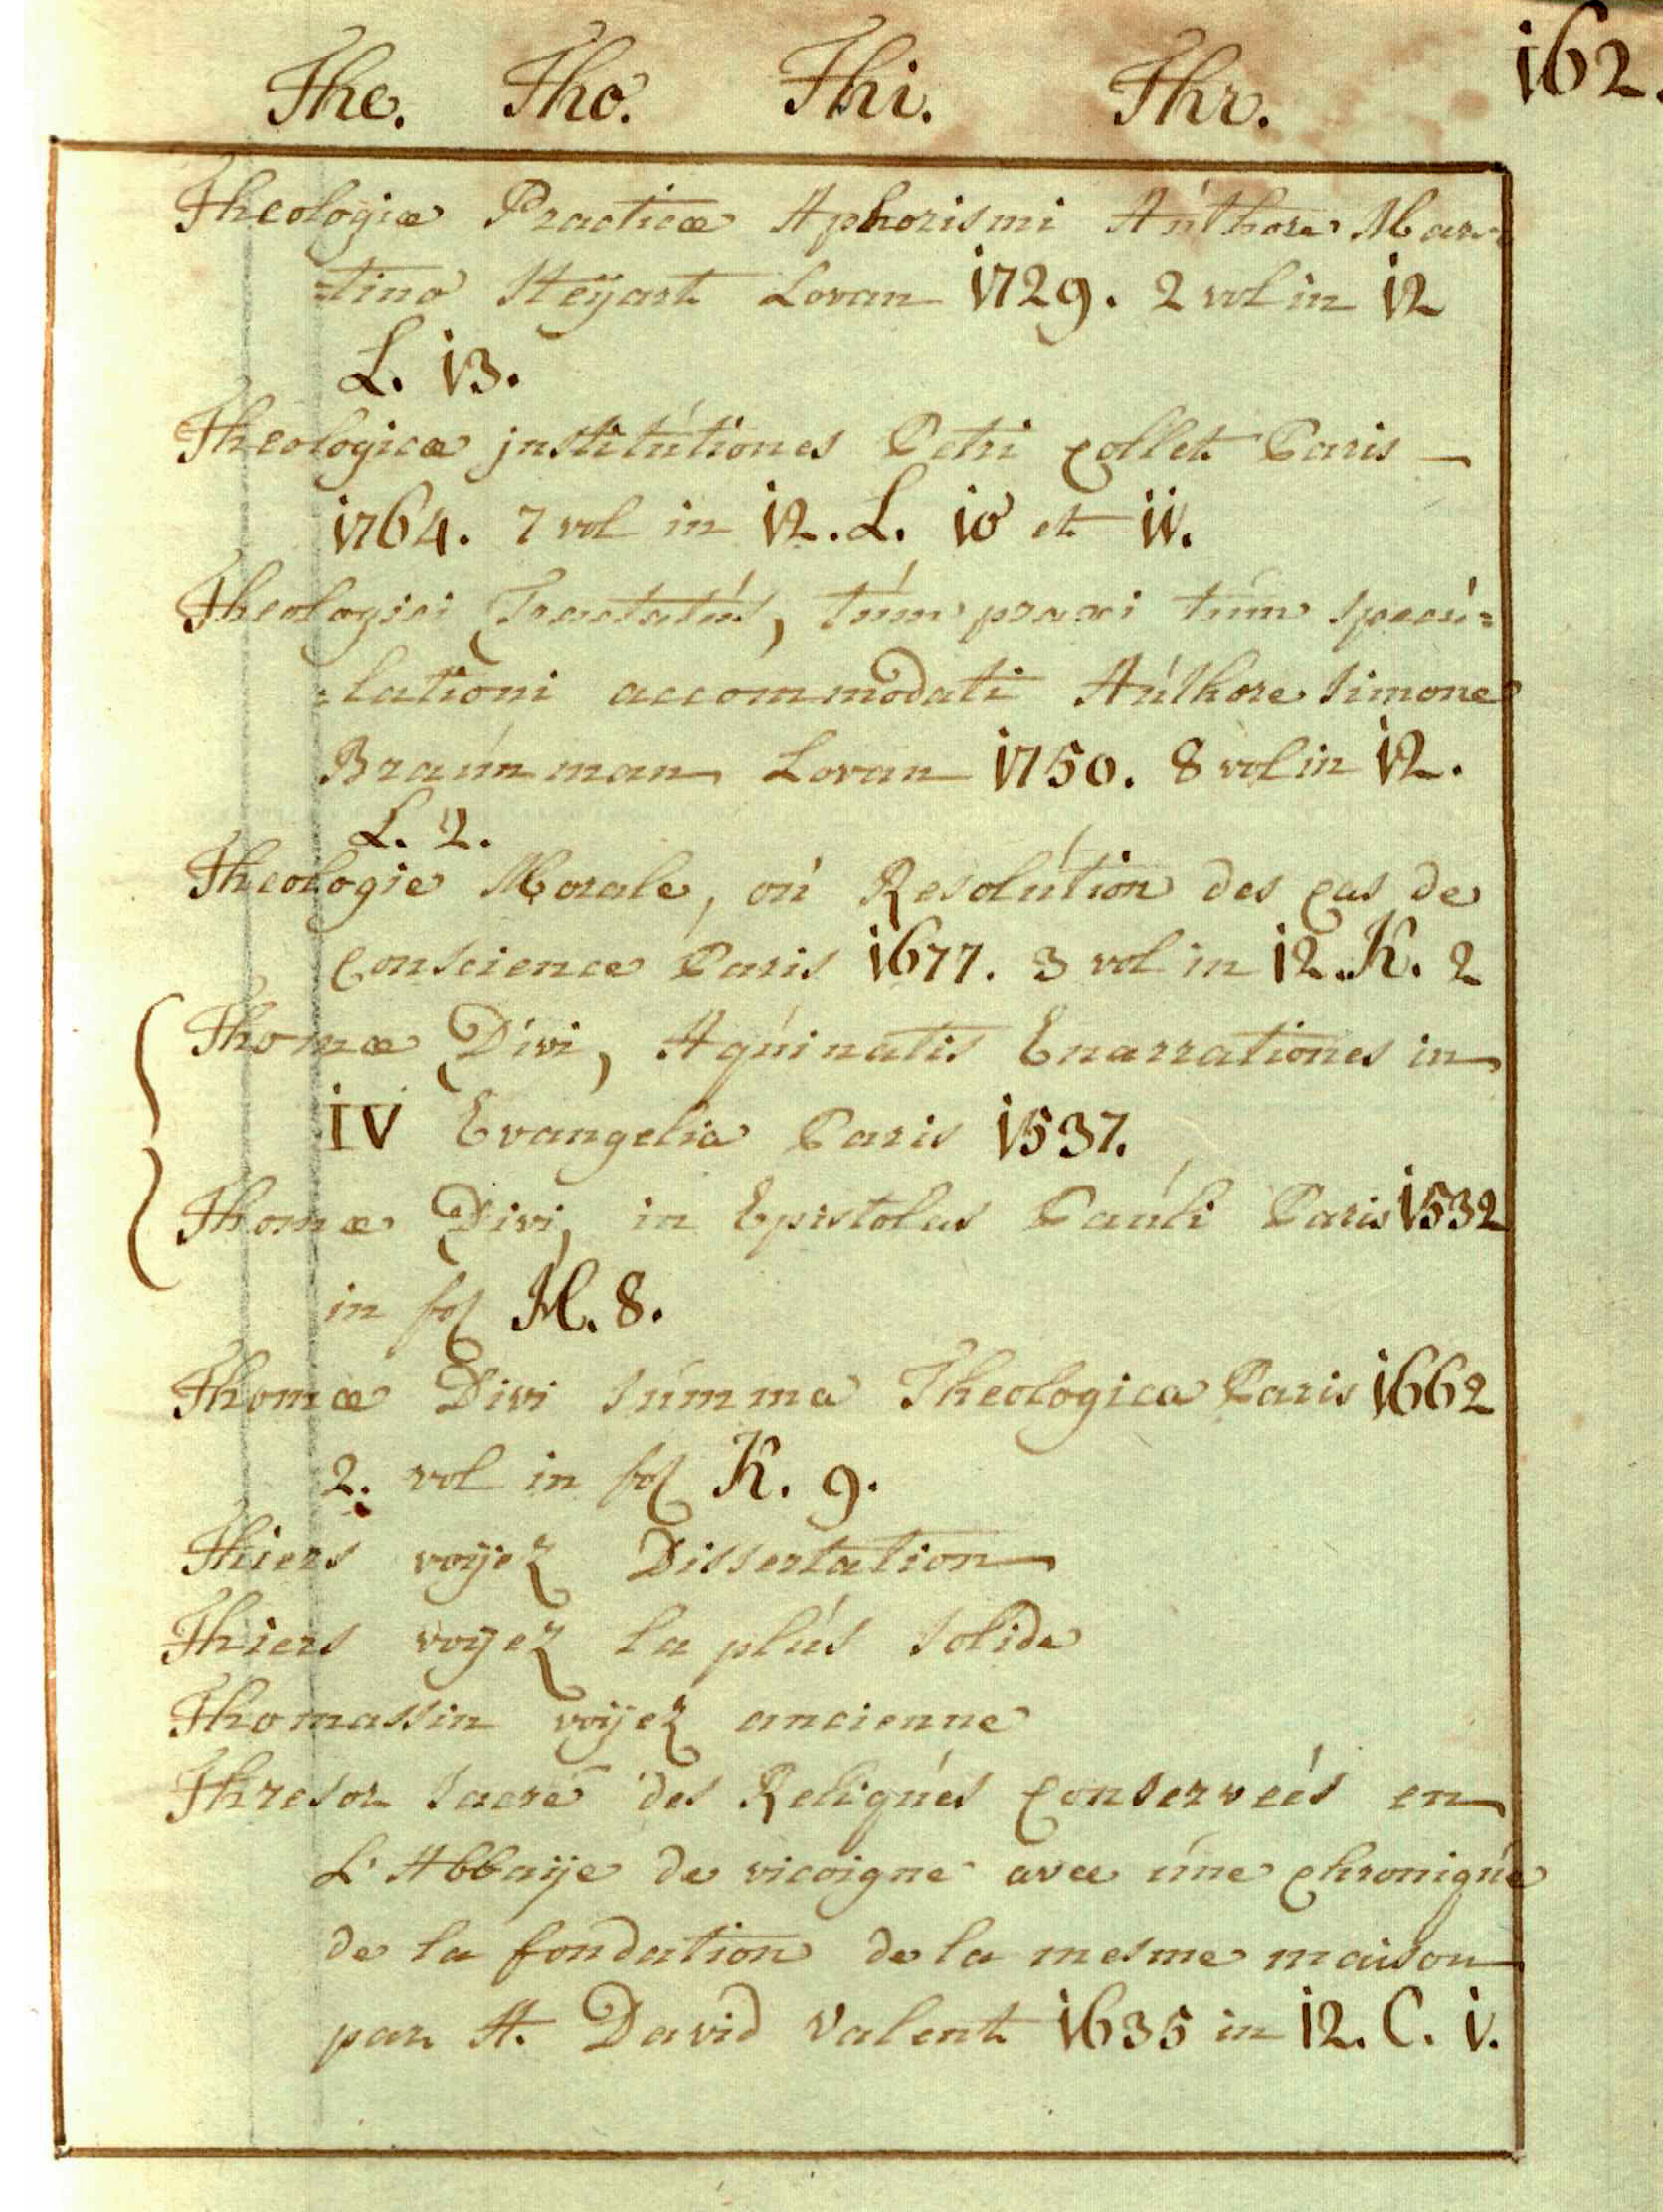 The. Tho. Thi. Thr. 162.
Theologiæ Practicæ Aphorismi Aúthore Mar-
=tino Steÿart Lovan 1729. 2 vol in 12
L. 13.
Theologicæ jnstitútiones Petri Collet Paris
1764. 7 vol in 12. L. 10 et 11.
Theologici Tractatús, túm praxi túm specú=
=lationi accommodati Aúthore Simone
Braúnman Lovan 1750. 8 vol in 12.
L. 2.
Theologie Morale, oú Resolútion des Cas de
Conscience Paris 1677. 3 vol in 12. K. 2
Thomæ Divi, Aqúinatis Enarrationes in
IV Evangelia Paris 1537.
Thomæ Divi, in Epistolas Paúli Paris 1532
in fol H. 8.
Thomæ Divi Súmma Theologica Paris 1662
2. vol in fol K. 9.
Thiers voÿez Dissertation
Thiers voÿez la plús Solide
Thomassin voÿez ancienne
Thresor Sacré des Reliqúes Conserveés en
L'Abbaÿe de vicoigne avec úne Chroniqúe
de la fondation de la mesme maison
par A. David Valent 1635 in 12. C. 1.